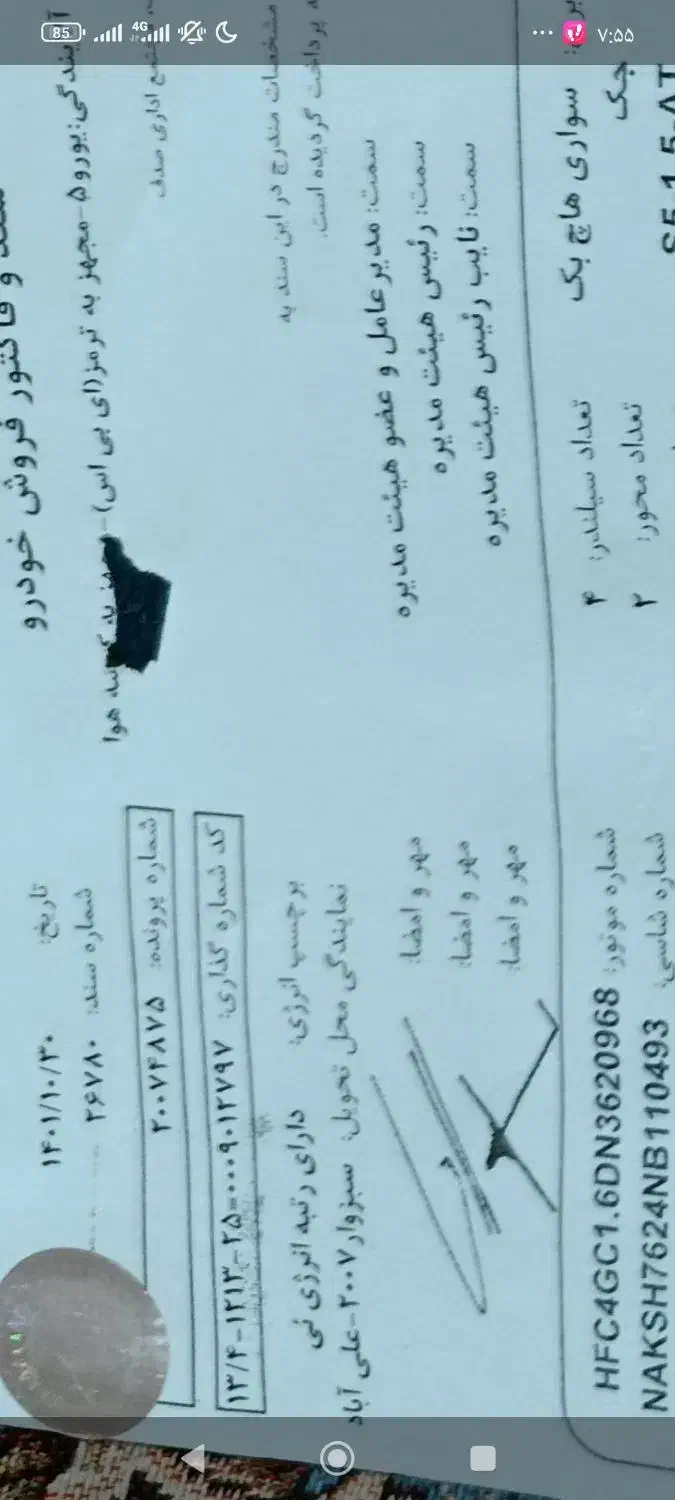 ۷:۵۵
4G
85
سند و فاکتور فروش خودرو
تاریخ: ۱۴۰۱/۱۰/۳۰
آلایندگی: یورو۵-مجهز به ترمز(ای بی اس)-
هوا
شماره سند: ۲۶۷۸۰
شماره پرونده: ۲۰۰۷۴۸۷۵
کد شماره گذاری: ۱۳/۴-۱۲۱۳-۲۵-۰۰۰۹۰۱۲۷۹۷
مشخصات مندرج در این سند به
برچسب انرژی: دارای رتبه انرژی نی
پرداخت گردیده است.
نمایندگی محل تحویل: سبزوار۲۰۰۷-علی آباد
سمت: مدیرعامل و عضو هیئت مدیره
مهر و امضا:
سمت: رئیس هیئت مدیره
مهر و امضا:
سمت: نایب رئیس هیئت مدیره
مهر و امضا:
سواری هاچ بک
تعداد سیلندر: ۴
شماره موتور: HFC4GC1.6DN3620968
جک
تعداد محور: ۲
شماره شاسی: NAKSH7624NB110493